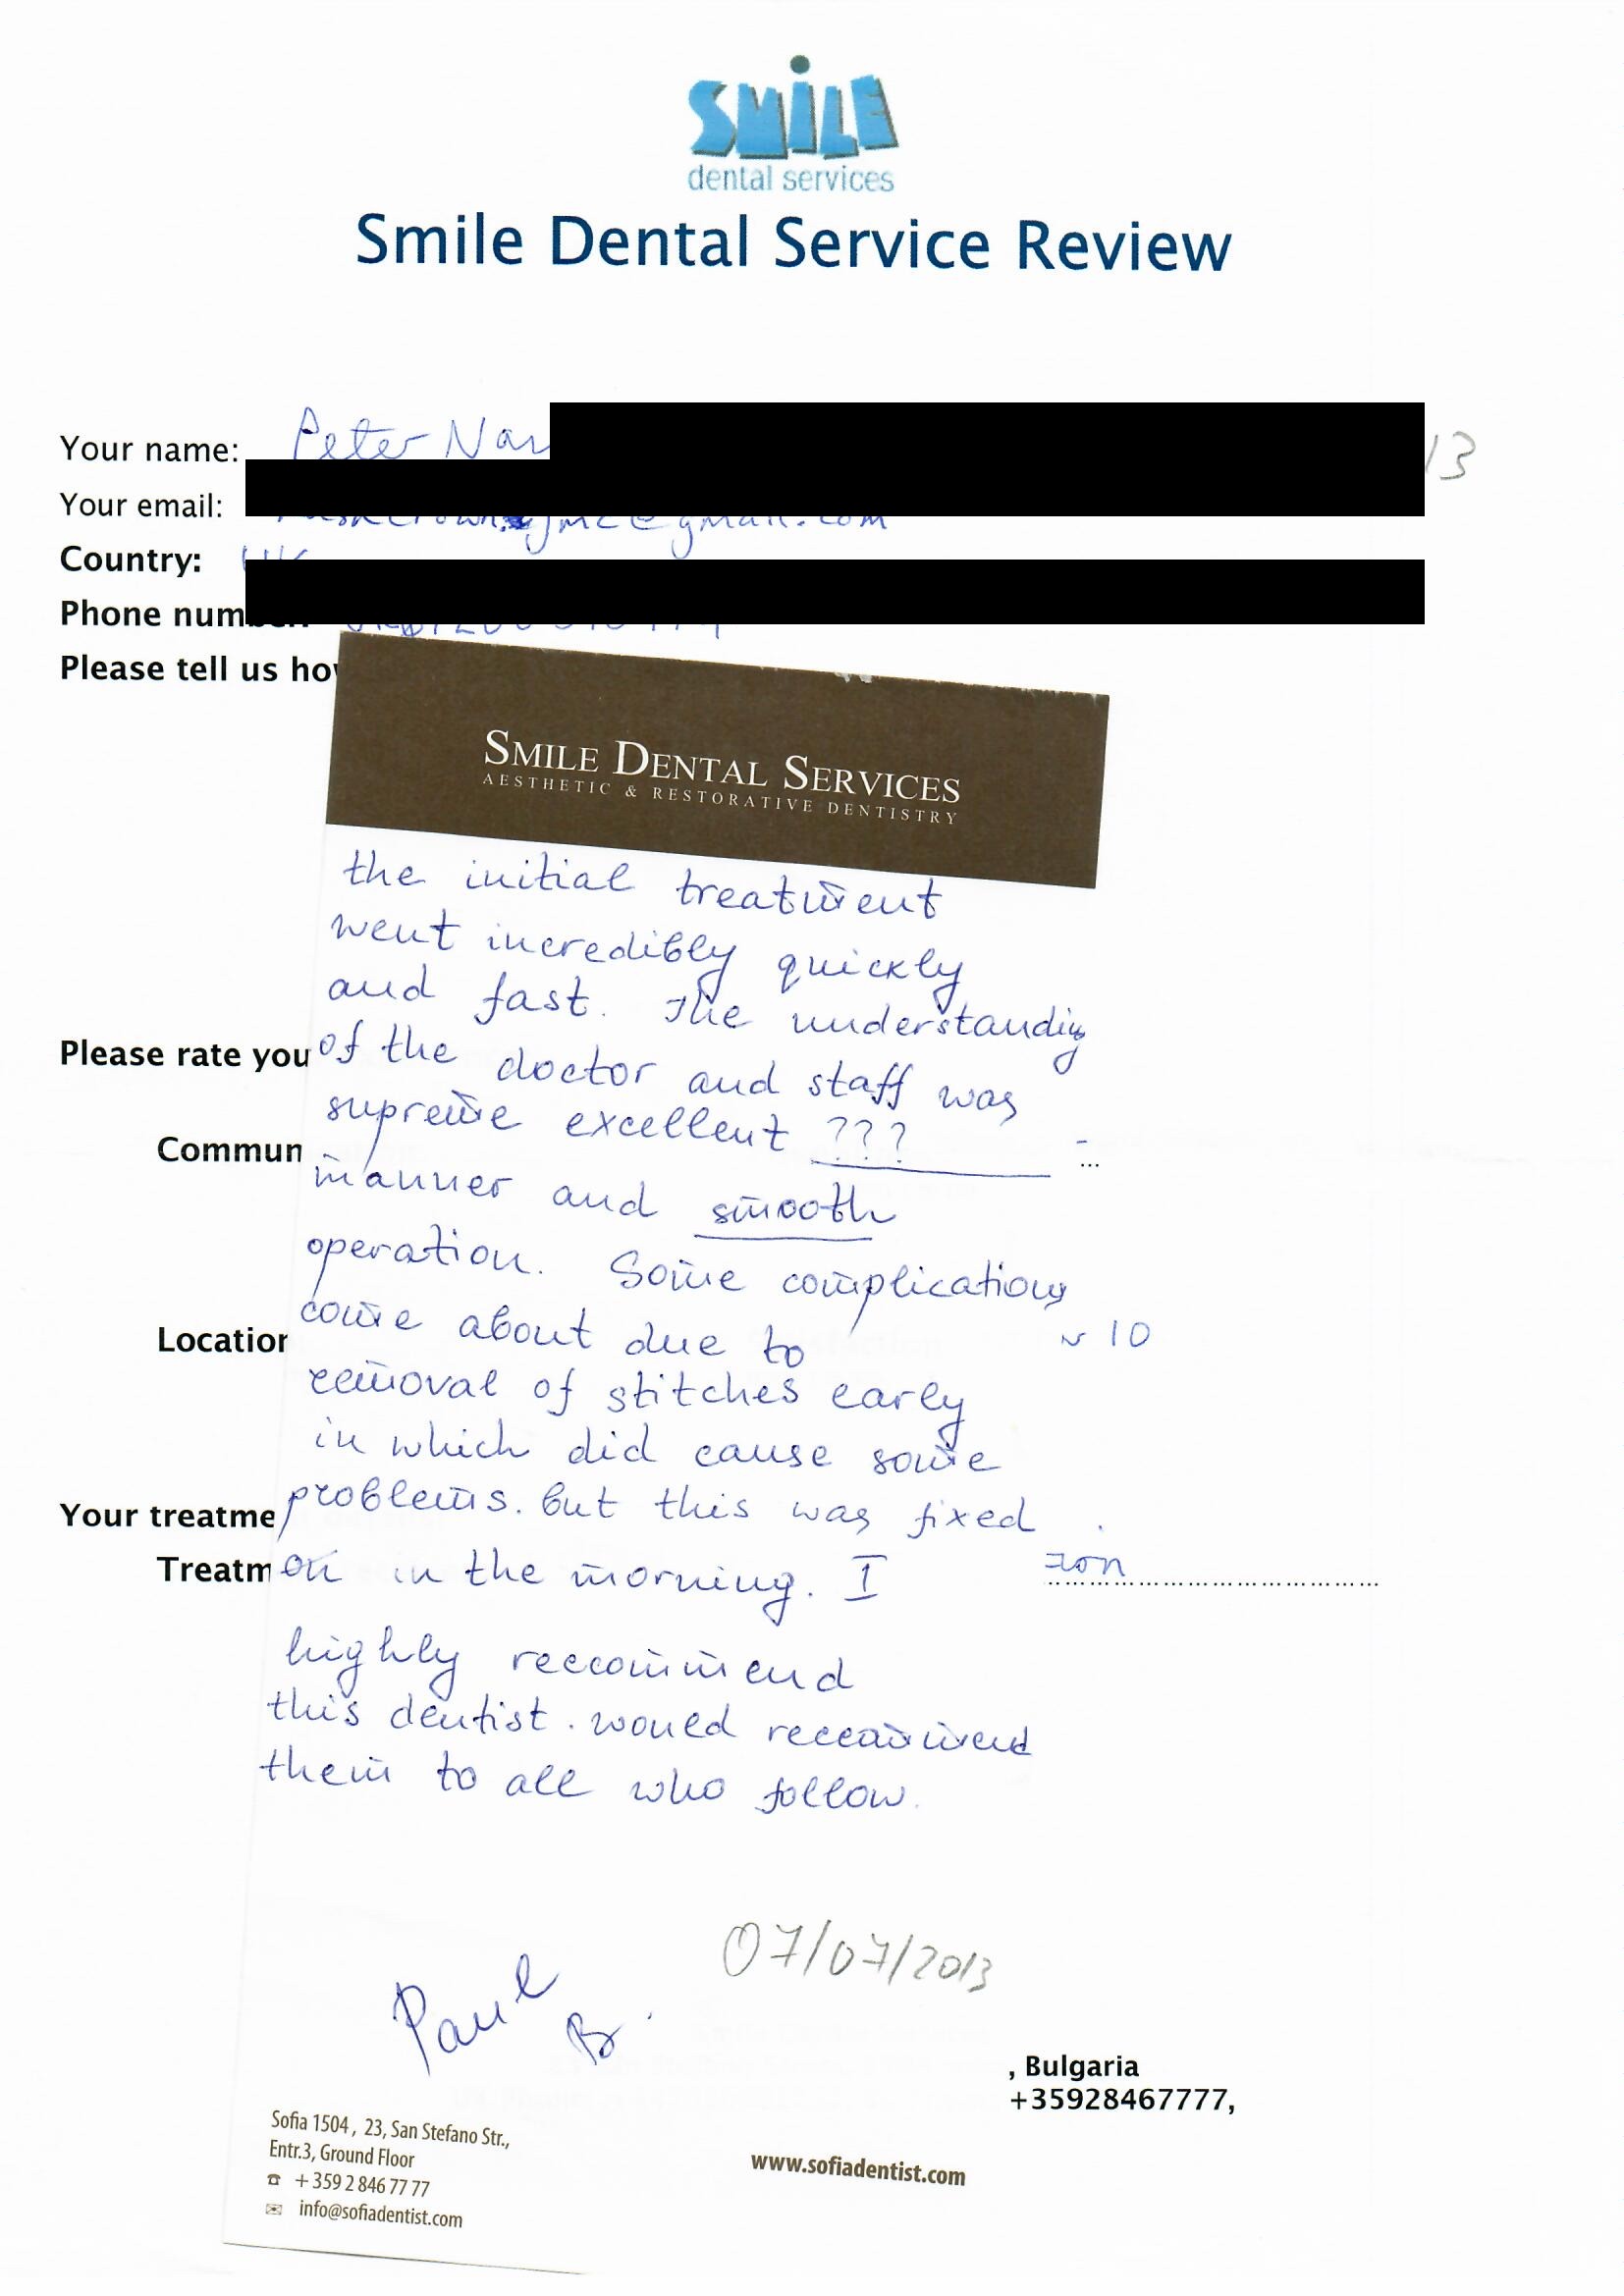 SMILE
dental services
Smile Dental Service Review
Your name: Peter Nar
13
Your email:
Country:
Phone num
Please tell us ho
SMILE DENTAL SERVICES
AESTHETIC & RESTORATIVE DENTISTRY
the initial treatment
went incredibly quickly
and fast. The understanding
of the doctor and staff was
supreme excellent ???
manner and smooth
operation. Some complications
come about due to
removal of stitches early
in which did cause some
problems. but this was fixed
on in the morning. I
highly reccommend
this dentist. would reccommend
them to all who follow.
Please rate you
Commun
...
Location
10
Your treatme
Treatm
Paul B.
07/07/2013
, Bulgaria
+35928467777,
Sofia 1504, 23, San Stefano Str.,
Entr.3, Ground Floor
+359 2 846 77 77
info@sofiadentist.com
www.sofiadentist.com